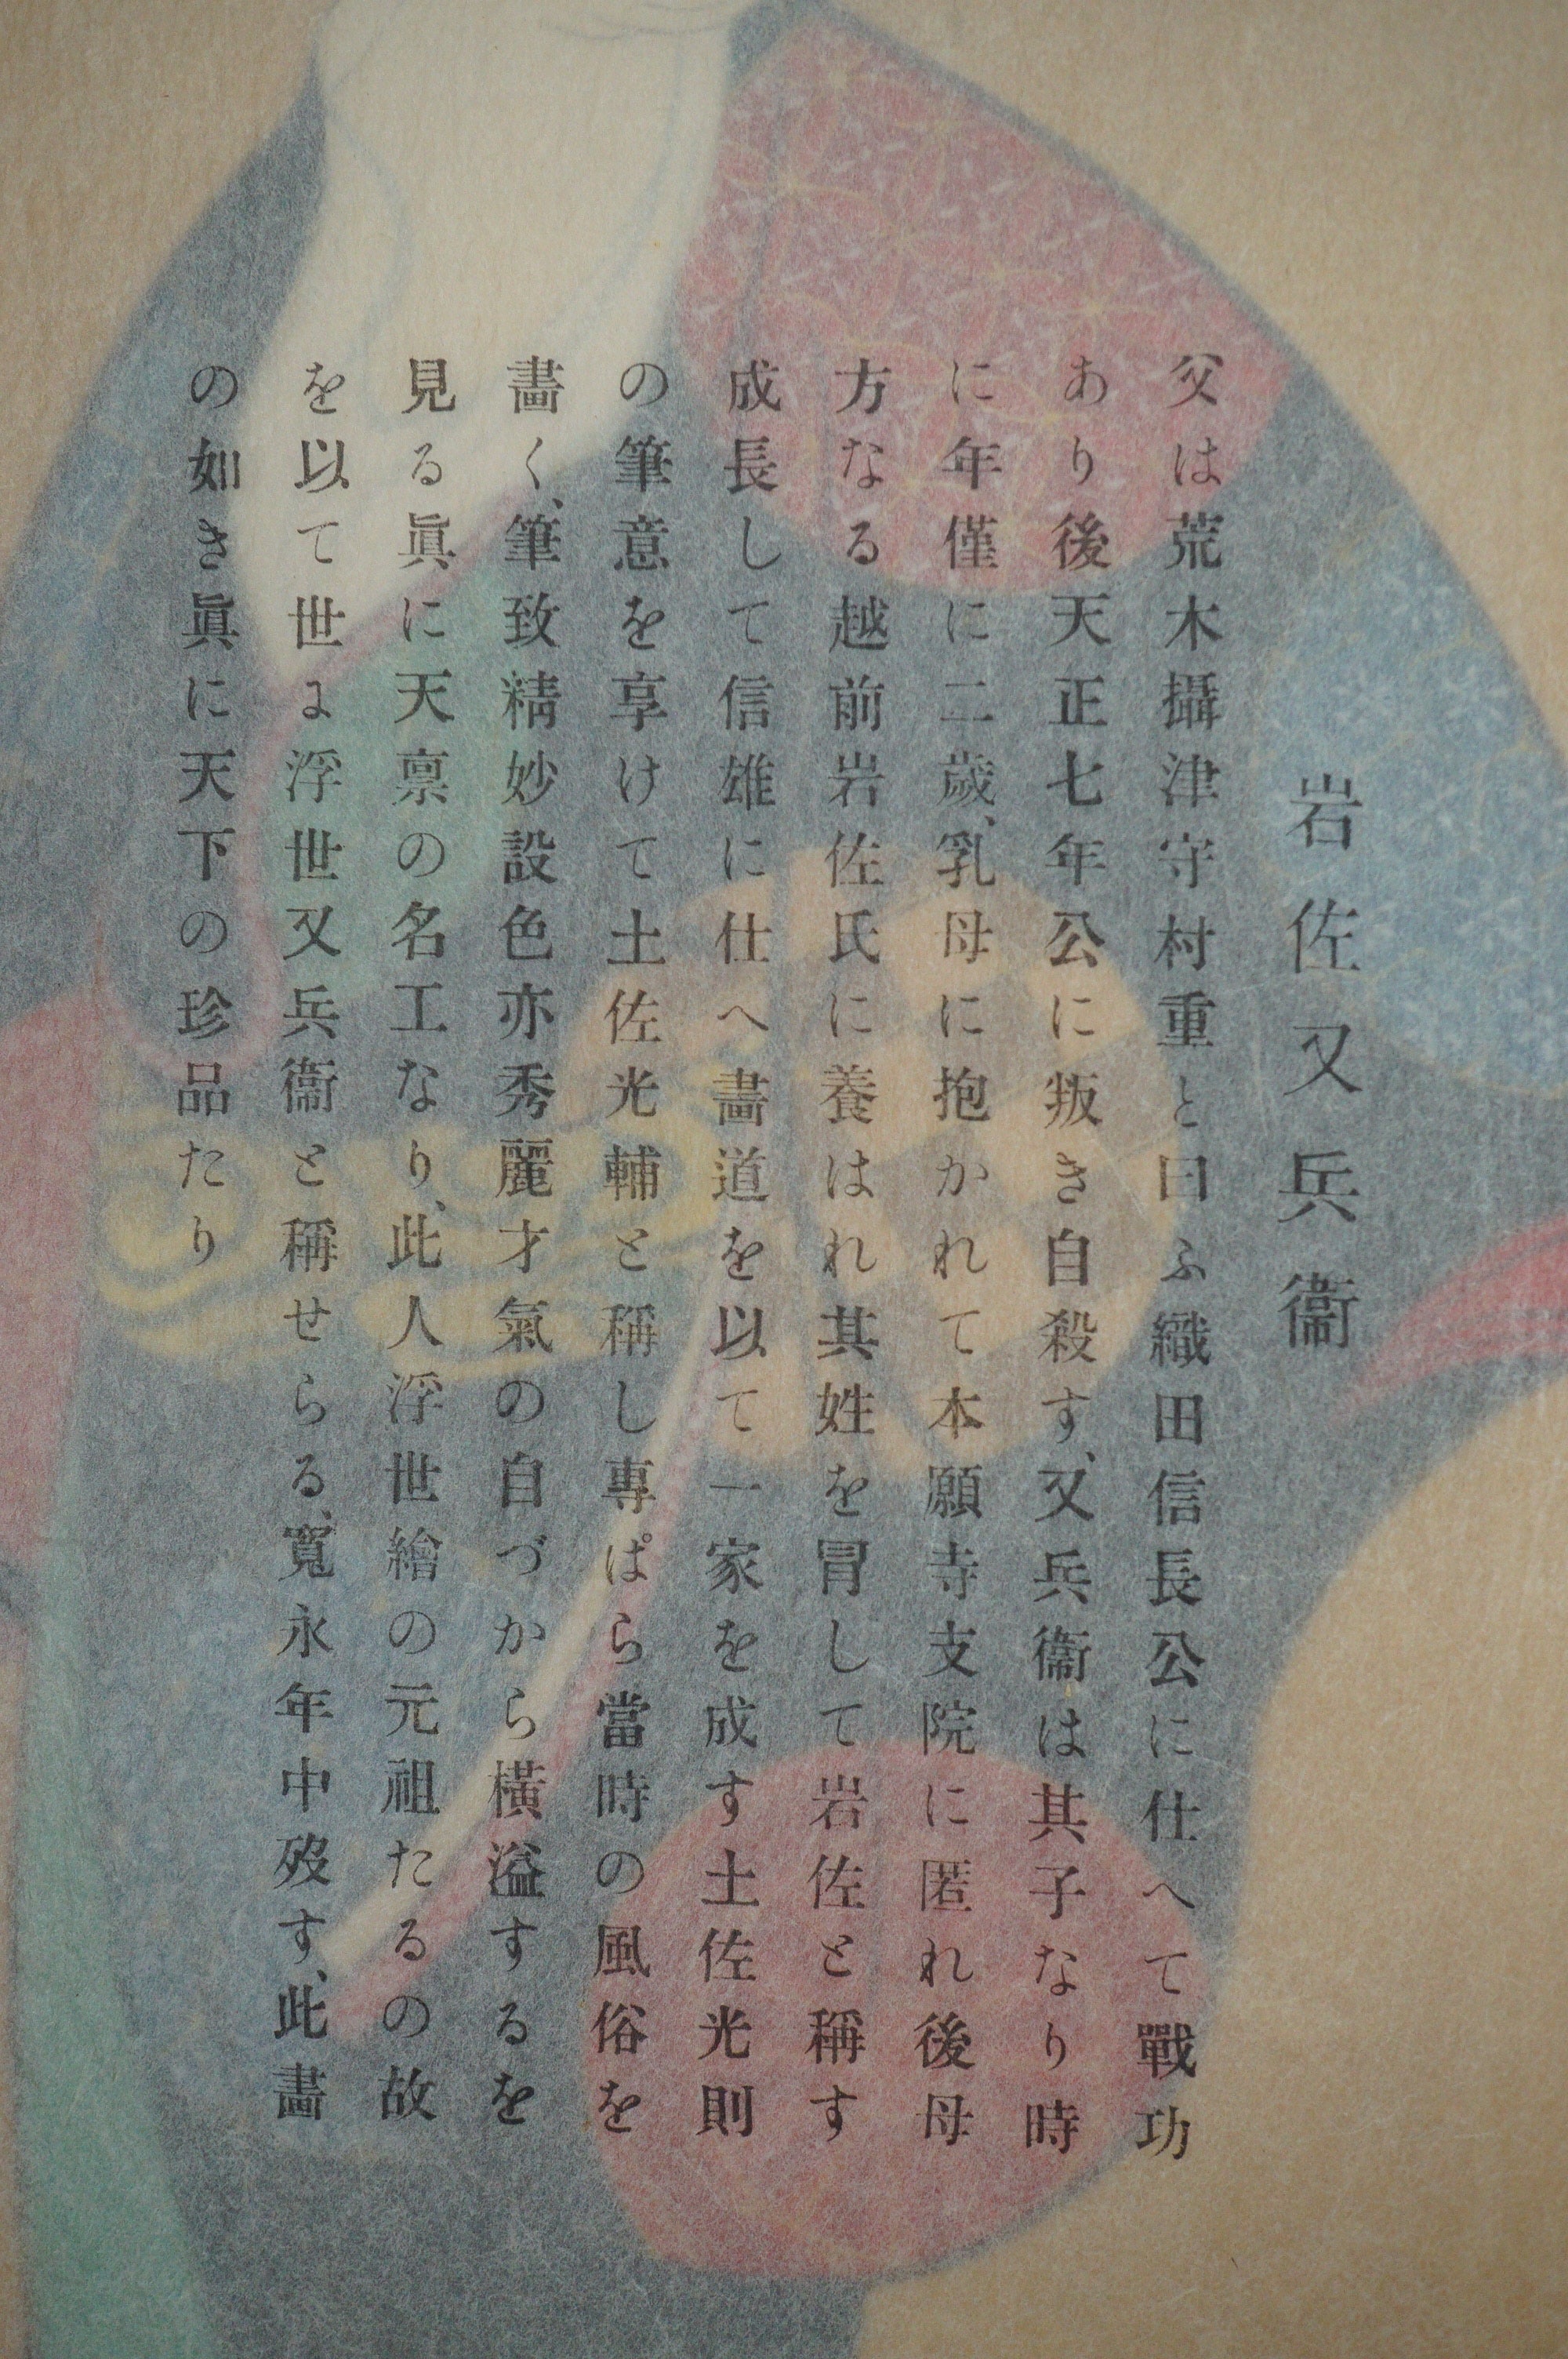 岩佐又兵衞
父は荒木攝津守村重と曰ふ織田信長公に仕へて戰功
あり後天正七年公に叛き自殺す、又兵衞は其子なり時
に年僅に二歲、乳母に抱かれて本願寺支院に匿れ後母
方なる越前岩佐氏に養はれ其姓を冒して岩佐と稱す
成長して信雄に仕へ畵道を以て一家を成す土佐光則
の筆意を享けて土佐光輔と稱し專ぱら當時の風俗を
畵く、筆致精妙設色亦秀麗才氣の自づから橫溢するを
見る眞に天禀の名工なり、此人浮世繪の元祖たるの故
を以て世ょ浮世又兵衞と稱せらる、寬永年中歿す、此畵
の如き眞に天下の珍品たり